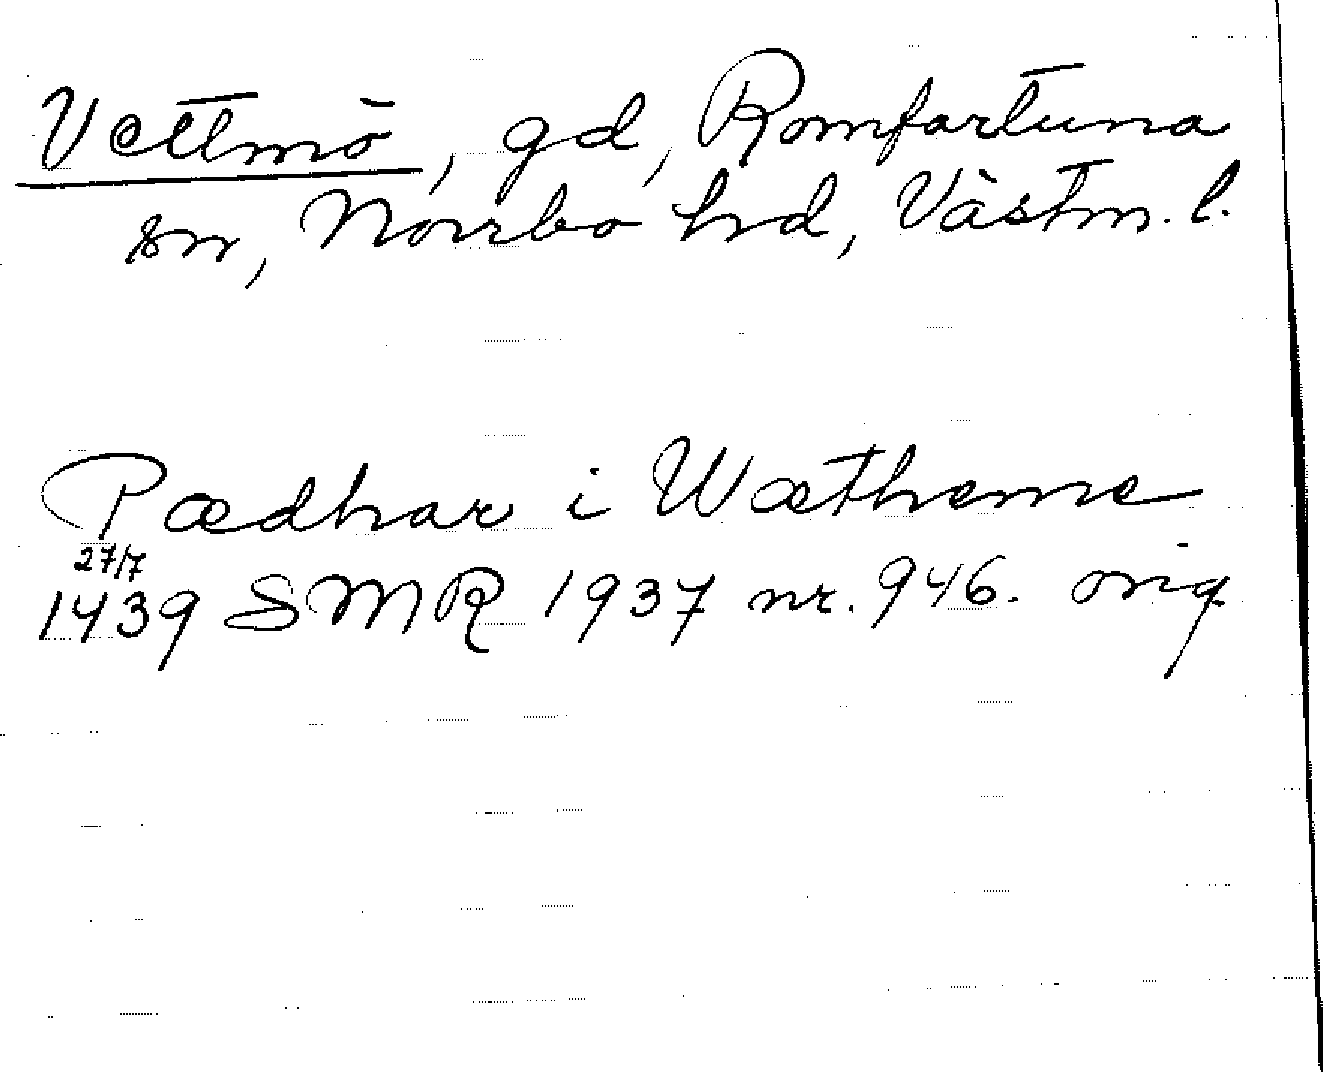 Vettmö, gd, Romfartuna
sn, Norrbo hd, Västm. l.
Pædhar i Wætheme
27/7
1439 SMR 1937 nr. 946. orig